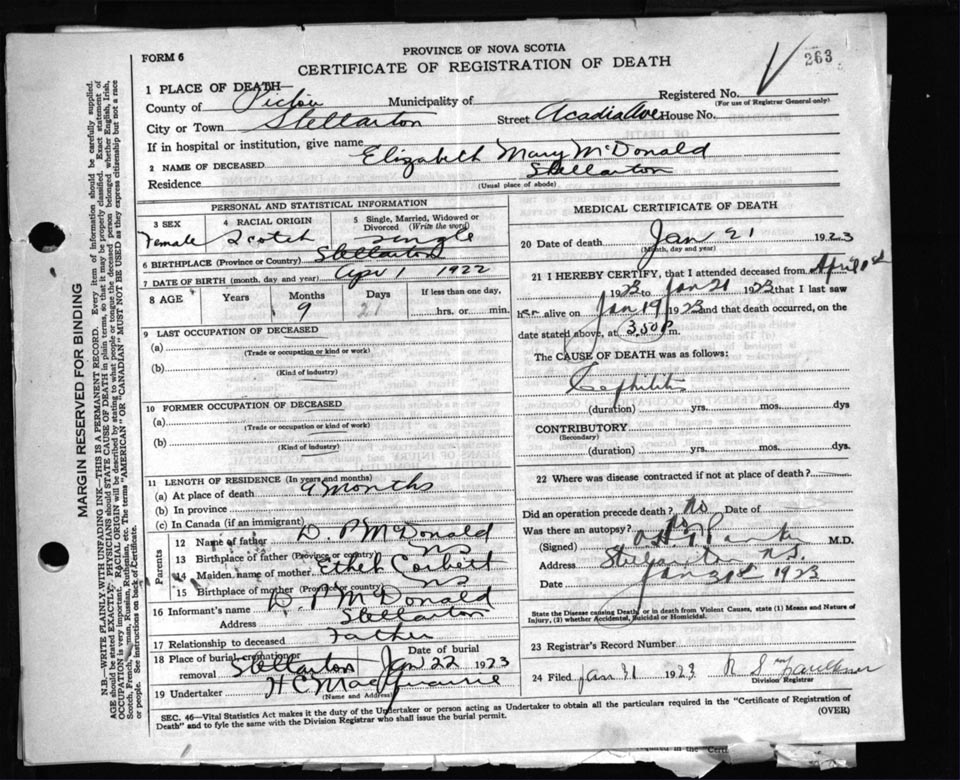 263
PROVINCE OF NOVA SCOTIA
FORM 6
CERTIFICATE OF REGISTRATION OF DEATH
1 PLACE OF DEATH—
Registered No.
(For use of Registrar General only)
County of Pictou Municipality of
City or Town Stellarton Street Acadia Ave House No.
If in hospital or institution, give name
2 NAME OF DECEASED Elizabeth Mary McDonald
Residence Stellarton
(Usual place of abode)
PERSONAL AND STATISTICAL INFORMATION
3 SEX 4 RACIAL ORIGIN 5 Single, Married, Widowed or Divorced (Write the word)
Female Scotch Single
6 BIRTHPLACE (Province or Country) Stellarton
7 DATE OF BIRTH (month, day and year) Apr 1 1922
8 AGE Years Months Days If less than one day,
9 21 hrs. or min.
9 LAST OCCUPATION OF DECEASED
(a)
(Trade or occupation or kind of work)
(b)
(Kind of industry)
10 FORMER OCCUPATION OF DECEASED
(a)
(Trade or occupation or kind of work)
(b)
(Kind of industry)
11 LENGTH OF RESIDENCE (In years and months)
(a) At place of death 9 months
(b) In province
(c) In Canada (if an immigrant)
Parents
12 Name of father D. P McDonald
13 Birthplace of father (Province or country) NS
14 Maiden name of mother Ethel Corbett
15 Birthplace of mother (Province or country) NS
16 Informant's name D. P McDonald
Address Stellarton
17 Relationship to deceased Father
18 Place of burial, cremation or removal Stellarton Date of burial Jan 22 1923
19 Undertaker H C Mac
(Name and Address)
MEDICAL CERTIFICATE OF DEATH
20 Date of death Jan 21 1923
(Month, day and year)
21 I HEREBY CERTIFY, that I attended deceased from April 1st
1923 to Jan 21 1923 that I last saw
her alive on Jan 19 1923 and that death occurred, on the
date stated above, at 3.50 P m.
The CAUSE OF DEATH was as follows:
(duration) yrs. mos. dys
CONTRIBUTORY
(Secondary)
(duration) yrs. mos. dys.
22 Where was disease contracted if not at place of death?
Did an operation precede death? no Date of
Was there an autopsy? no
(Signed) M.D.
Address Stellarton N.S.
Date Jan 1923
State the Disease causing Death, or in death from Violent Causes, state (1) Means and Nature of Injury, (2) whether Accidental, Suicidal or Homicidal.
23 Registrar's Record Number
24 Filed Jan 31 1923 R S Faulkner
Division Registrar
SEC. 46—Vital Statistics Act makes it the duty of the Undertaker or person acting as Undertaker to obtain all the particulars required in the "Certificate of Registration of
Death" and to fyle the same with the Division Registrar who shall issue the burial permit.
(OVER)
MARGIN RESERVED FOR BINDING
N.B.—WRITE PLAINLY WITH UNFADING INK—THIS IS A PERMANENT RECORD. Every item of information should be carefully supplied.
AGE should be stated EXACTLY. PHYSICIANS should STATE CAUSE OF DEATH in plain terms, so that it may be properly classified. Exact statement of
OCCUPATION is very important. RACIAL ORIGIN will be described by stating to what people or tongue the deceased person belonged whether English, Irish,
Scotch, French, Russian, Ruthenian, etc. The terms "AMERICAN" OR "CANADIAN" MUST NOT BE USED as they express citizenship but not a race
or people. See instructions on back of Certificate.